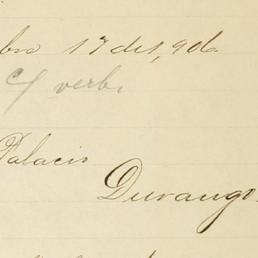 bre 17 de 1,906
c/ verb.
Palacio
Durango.